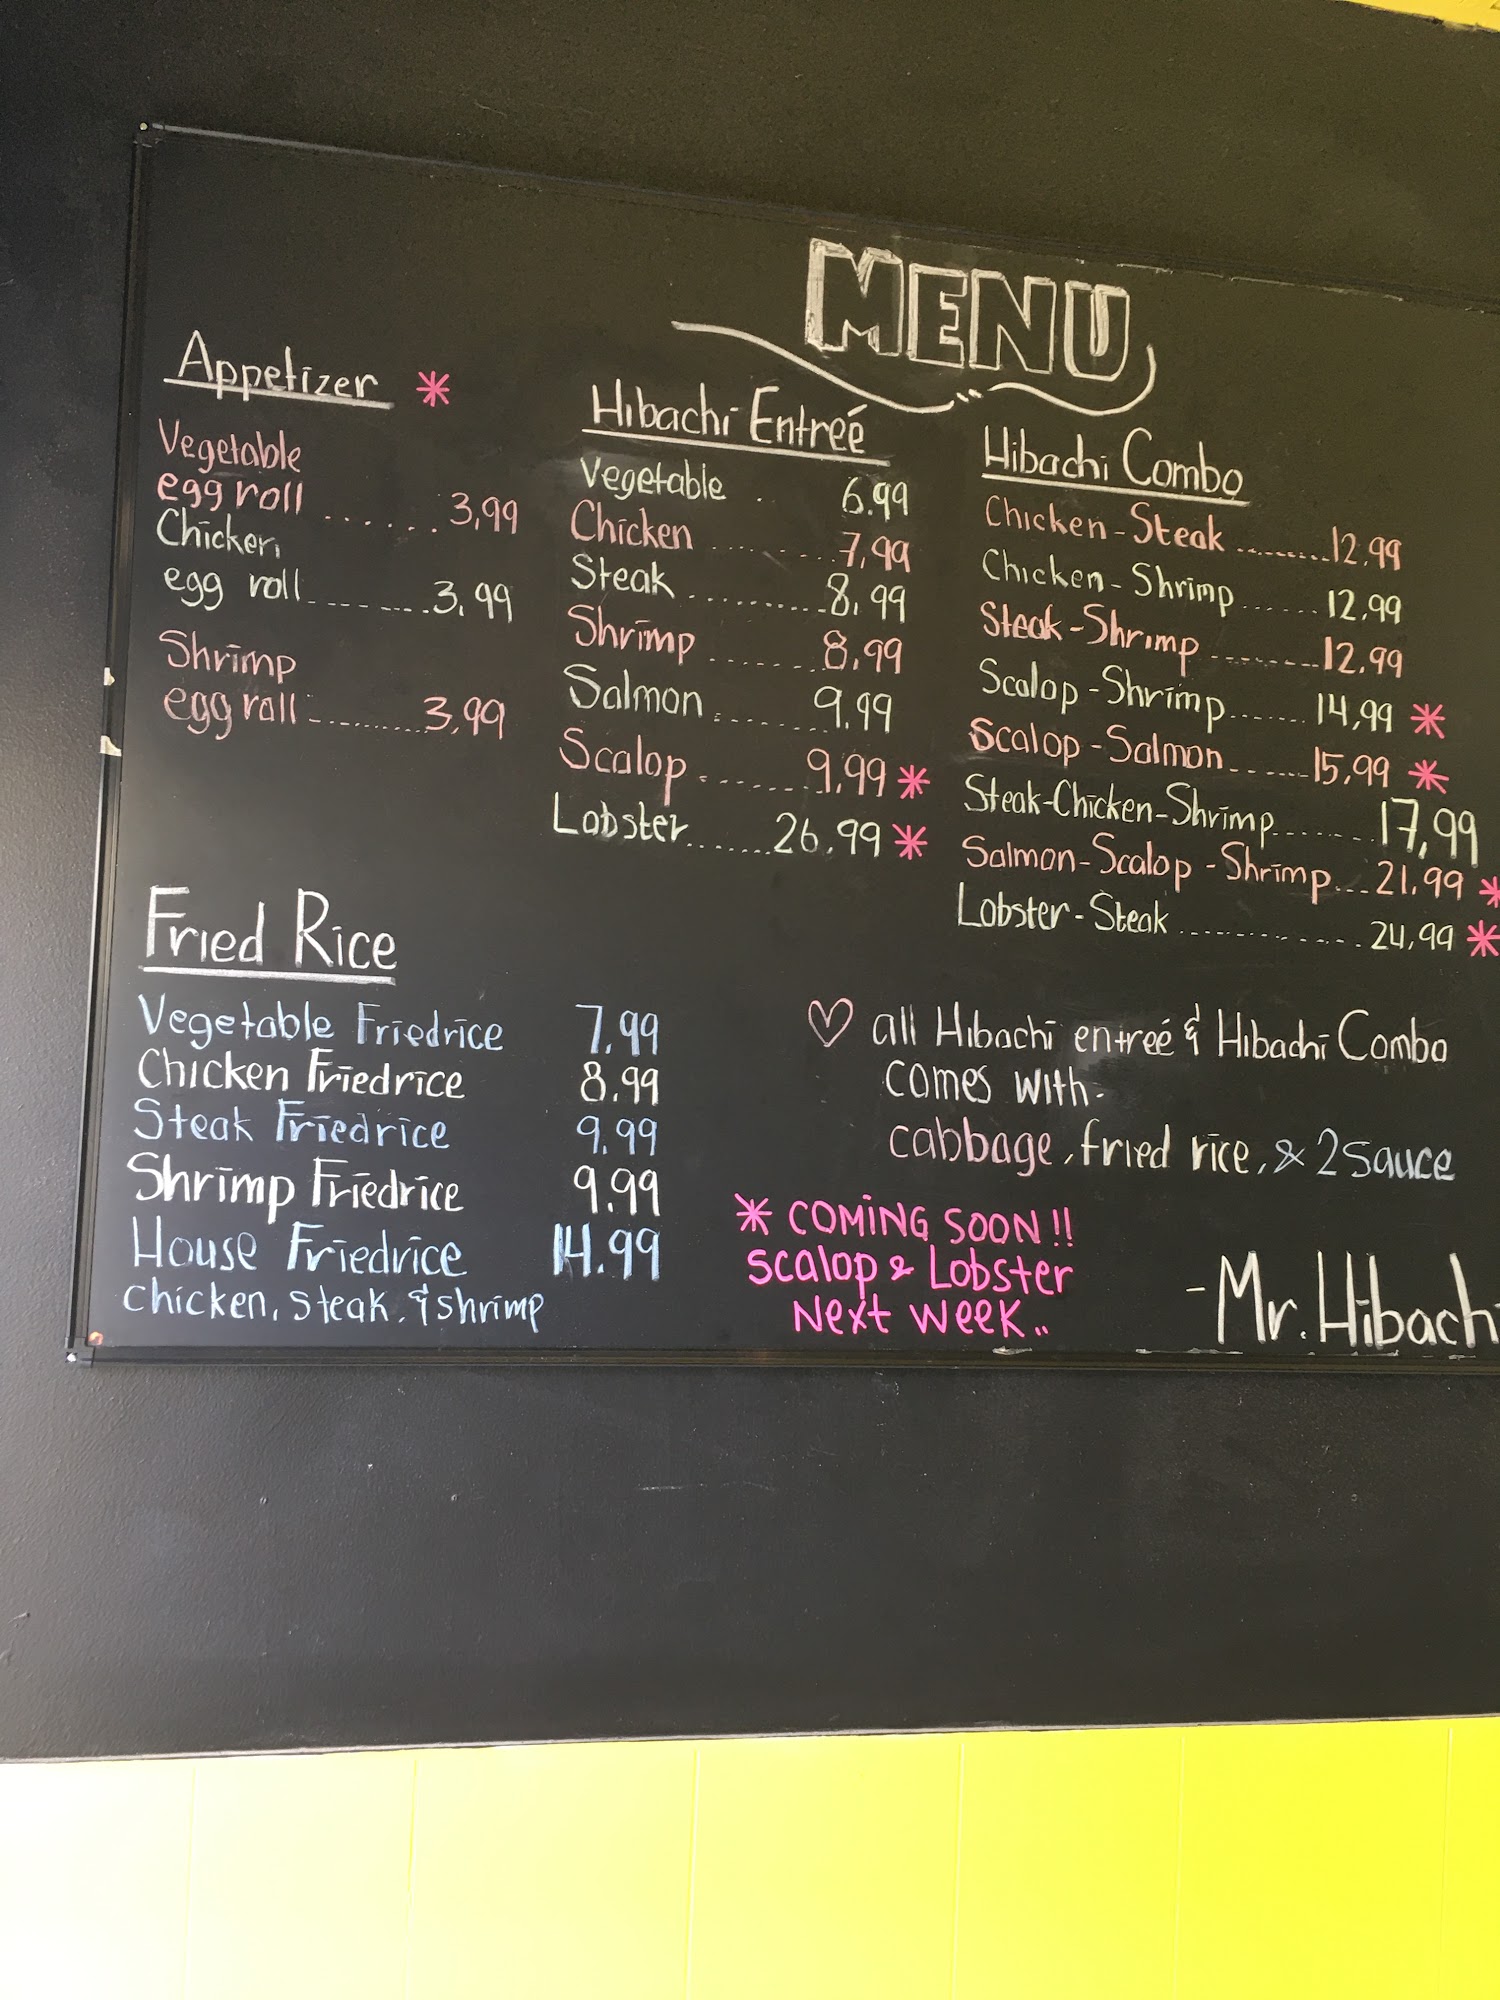 MENU
Appetizer *
Vegetable
egg roll ....... 3,99
Chicken
egg roll ......... 3,99
Shrimp
egg roll .......... 3,99
Hibachi Entreé
Vegetable . 6.99
Chicken ......... 7,99
Steak ............ 8,99
Shrimp ........ 8,99
Salmon ....... 9.99
Scalop ........ 9.99 *
Lobster ........ 26.99 *
Hibachi Combo
Chicken-Steak ......... 12.99
Chicken-Shrimp ....... 12,99
Steak-Shrimp ......... 12,99
Scalop-Shrimp ....... 14,99 *
Scalop-Salmon ...... 15,99 *
Steak-Chicken-Shrimp ....... 17,99
Salmon-Scalop-Shrimp ... 21,99 *
Lobster-Steak .............. 24,99 *
Fried Rice
Vegetable Friedrice 7.99
Chicken Friedrice 8.99
Steak Friedrice 9.99
Shrimp Friedrice 9.99
House Friedrice 14.99
chicken, steak, & shrimp
♡ all Hibachi entreé & Hibachi Combo
comes with.
cabbage, fried rice, & 2 sauce
* COMING SOON!!
Scalop & Lobster
Next week..
-Mr. Hibachi